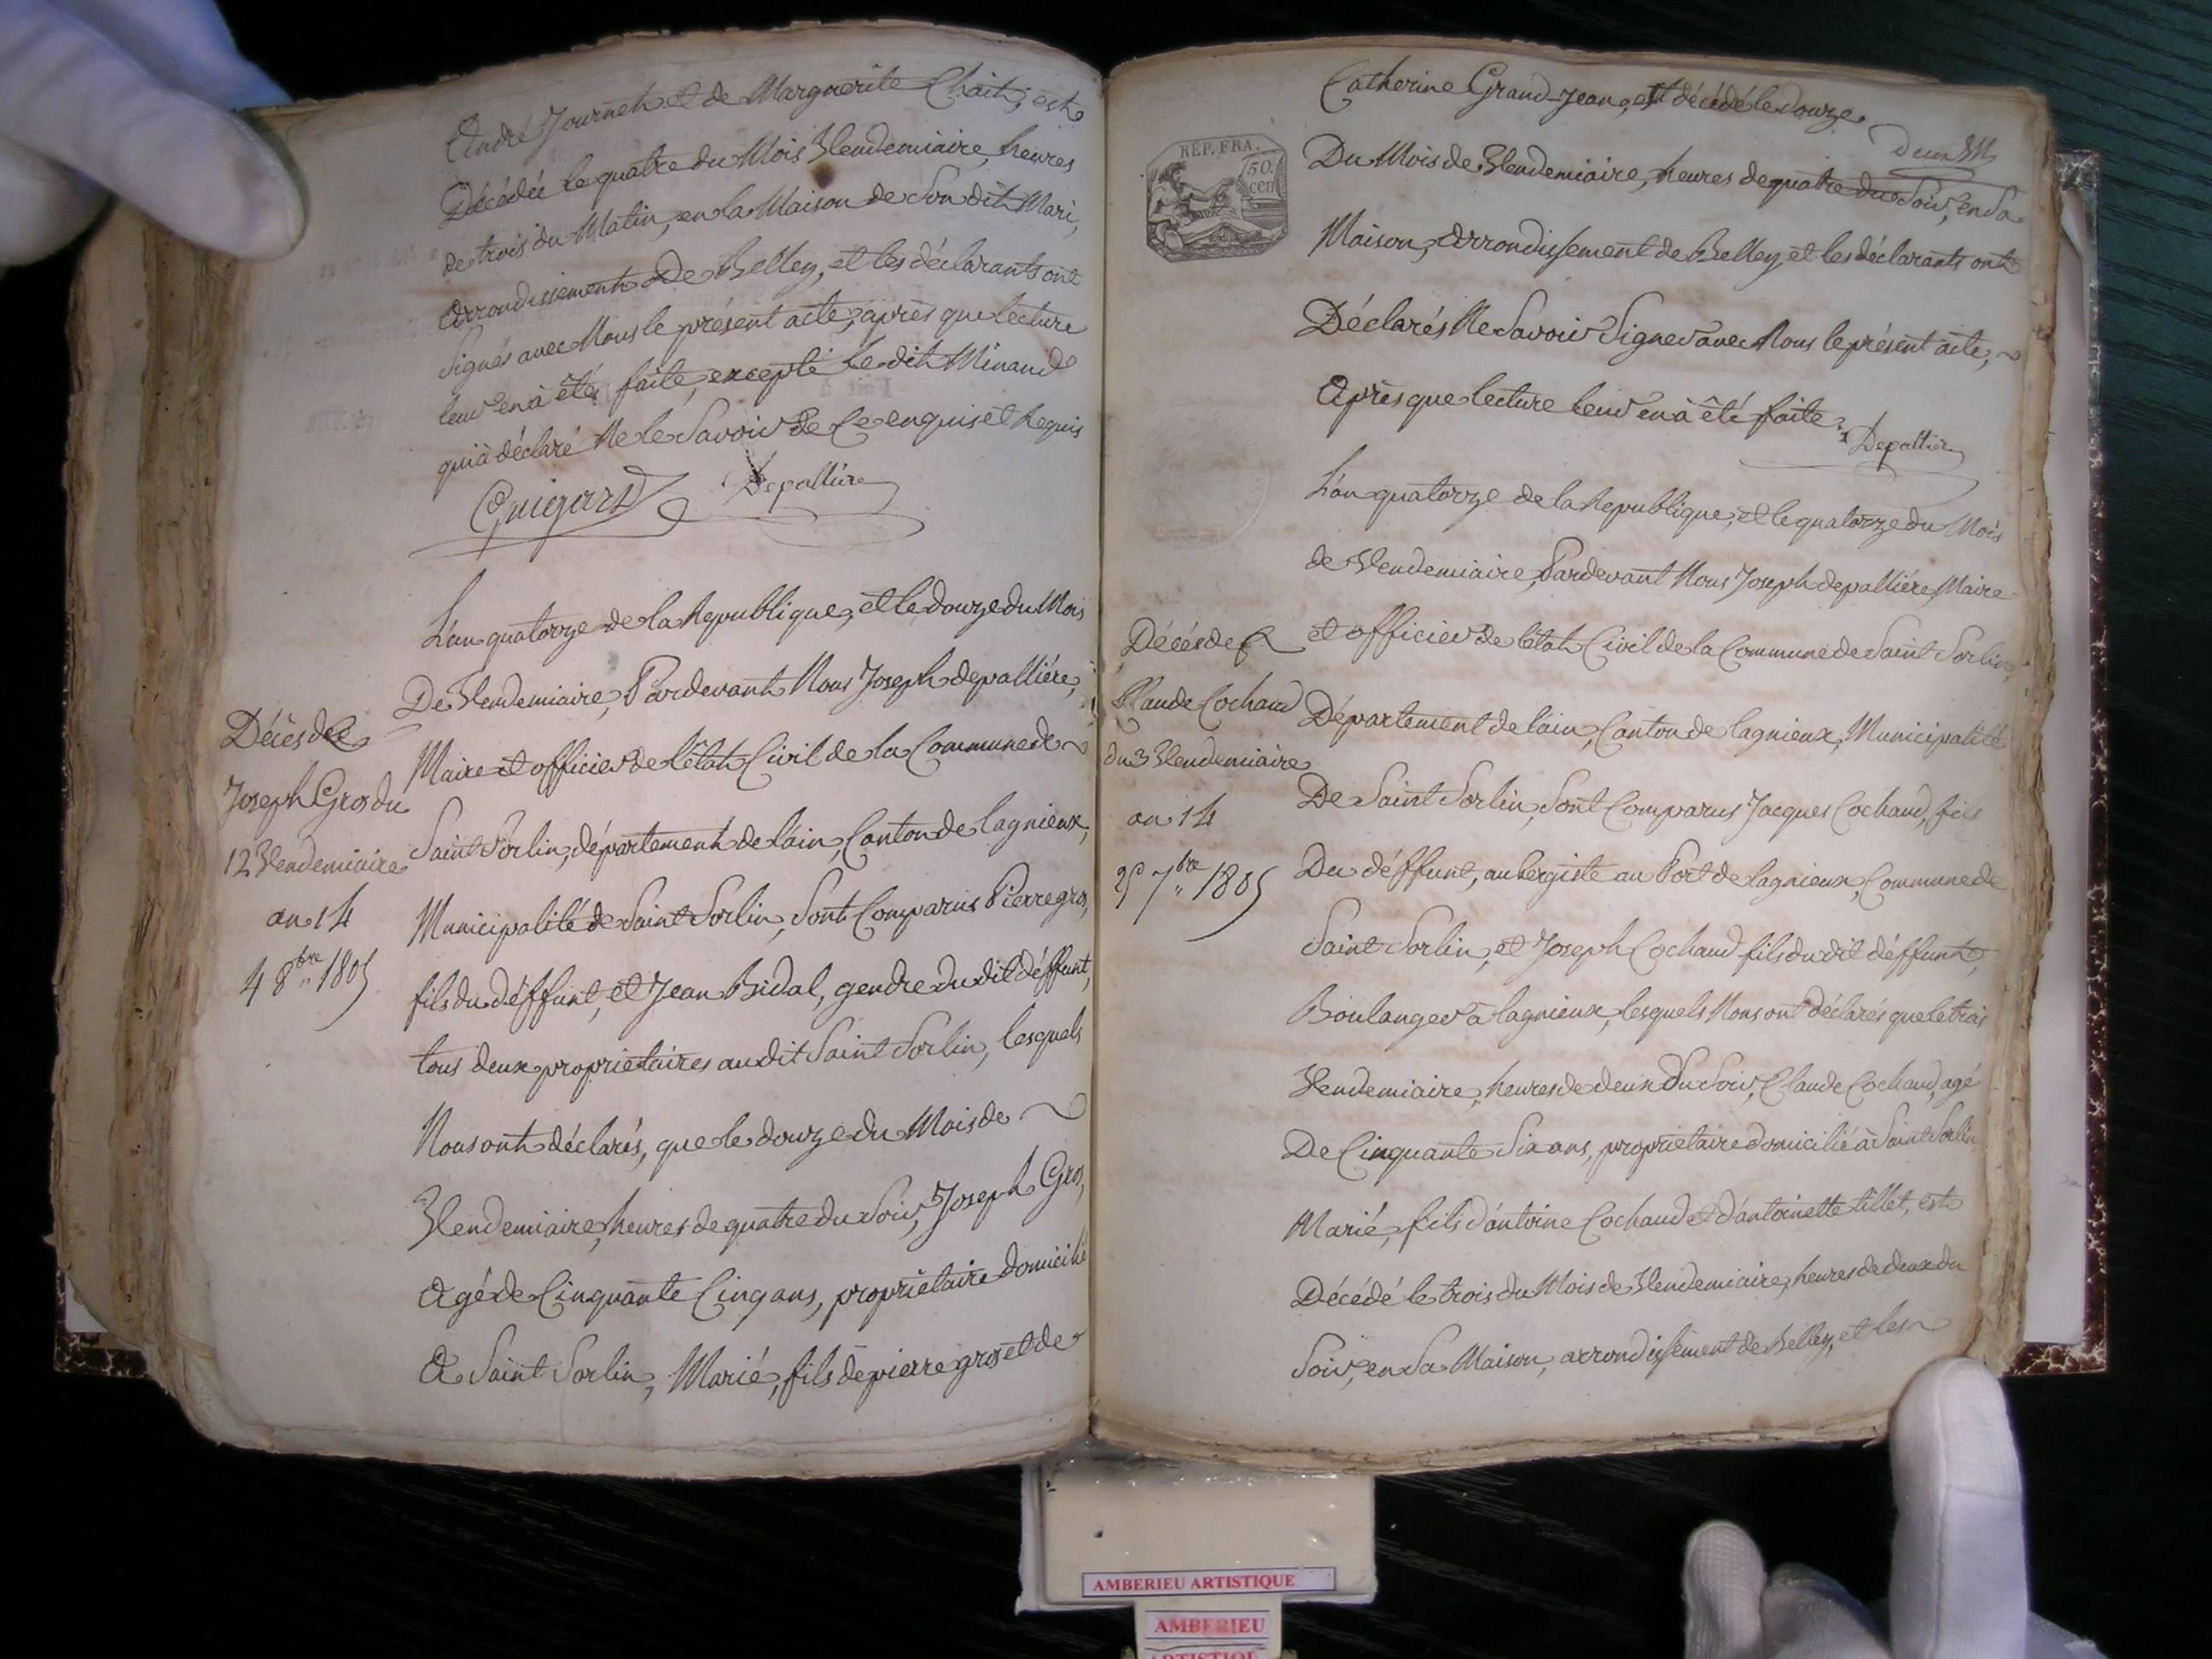 André Journet et de Marguerite Chait, est
Décédée le quatre du Mois Vendemiaire, heures
de trois du Matin, en la Maison de Son dit Mari,
arrondissement De Belley, et les déclarants ont
Signés avec Nous le présent acte, après que lecture
leur en à êté faite, excepté le dit Minand
qui à déclaré Ne le Savoir de Ce enquis et Requis
Guigard Depallière
L'an quatorze de la Republique, et le douze du Mois
De Vendemiaire, Pardevant Nous Joseph depallière,
Maire et officier de l'êtat Civil de la Commune de
Saint Sorlin, département de l'ain, Canton de lagnieux,
Municipalité de Saint Sorlin, Sont Comparus Pierre gros,
fils du déffunt, et Jean Bidal, gendre du dit déffunt,
tous deux propriétaires au dit Saint Sorlin, lesquels
Nous ont déclarés, que le douze du Mois de
Vendemiaire, heures de quatre du Soir, Joseph Gros,
agé de Cinquante Cinq ans, propriétaire domicilié
A Saint Sorlin, Marié, fils de pierre gros et de
Décès de
Joseph Gros du
12 Vendemiaire
an 14
4 8bre 1805
Catherine Grand-Jean, est décédé le douze
Du Mois de Vendemiaire, heures de quatre du Soir, en Sa
Maison, arrondissement de Belley, et les déclarants ont
Déclarés Ne Savoir Signer avec Nous le présent acte,
Après que lecture leur en à êté faite.
Depallière
REP. FRA.
50.
cen
L'an quatorze de la Republique, et le quatorze du Mois
de Vendemiaire, Pardevant Nous Joseph depallière, Maire
et officier de l'êtat Civil de la Commune de Saint Sorlin,
Département de l'ain, Canton de lagnieux, Municipalité
De Saint Sorlin, Sont Comparus Jacques Cochaud, fils
Du déffunt, aubergiste au Port de lagnieux, Commune de
Saint Sorlin, et Joseph Cochaud fils du dit déffunt,
Boulanger à lagnieux, lesquels Nous ont déclarés que le trois
Vendemiaire, heures de deux Du Soir, Claude Cochaud, agé
De Cinquante Six ans, propriétaire domicilié à Saint Sorlin
Marié, fils d'antoine Cochaud et d'antoinette tillet, est
Décédé le trois du Mois de Vendemiaire, heures de deux du
Soir, en Sa Maison, arrondissement de Belley, et les
Décès de
Claude Cochaud
du 3 Vendemiaire
an 14
25 7bre 1805
AMBERIEU ARTISTIQUE
AMBERIEU
ARTISTIQUE